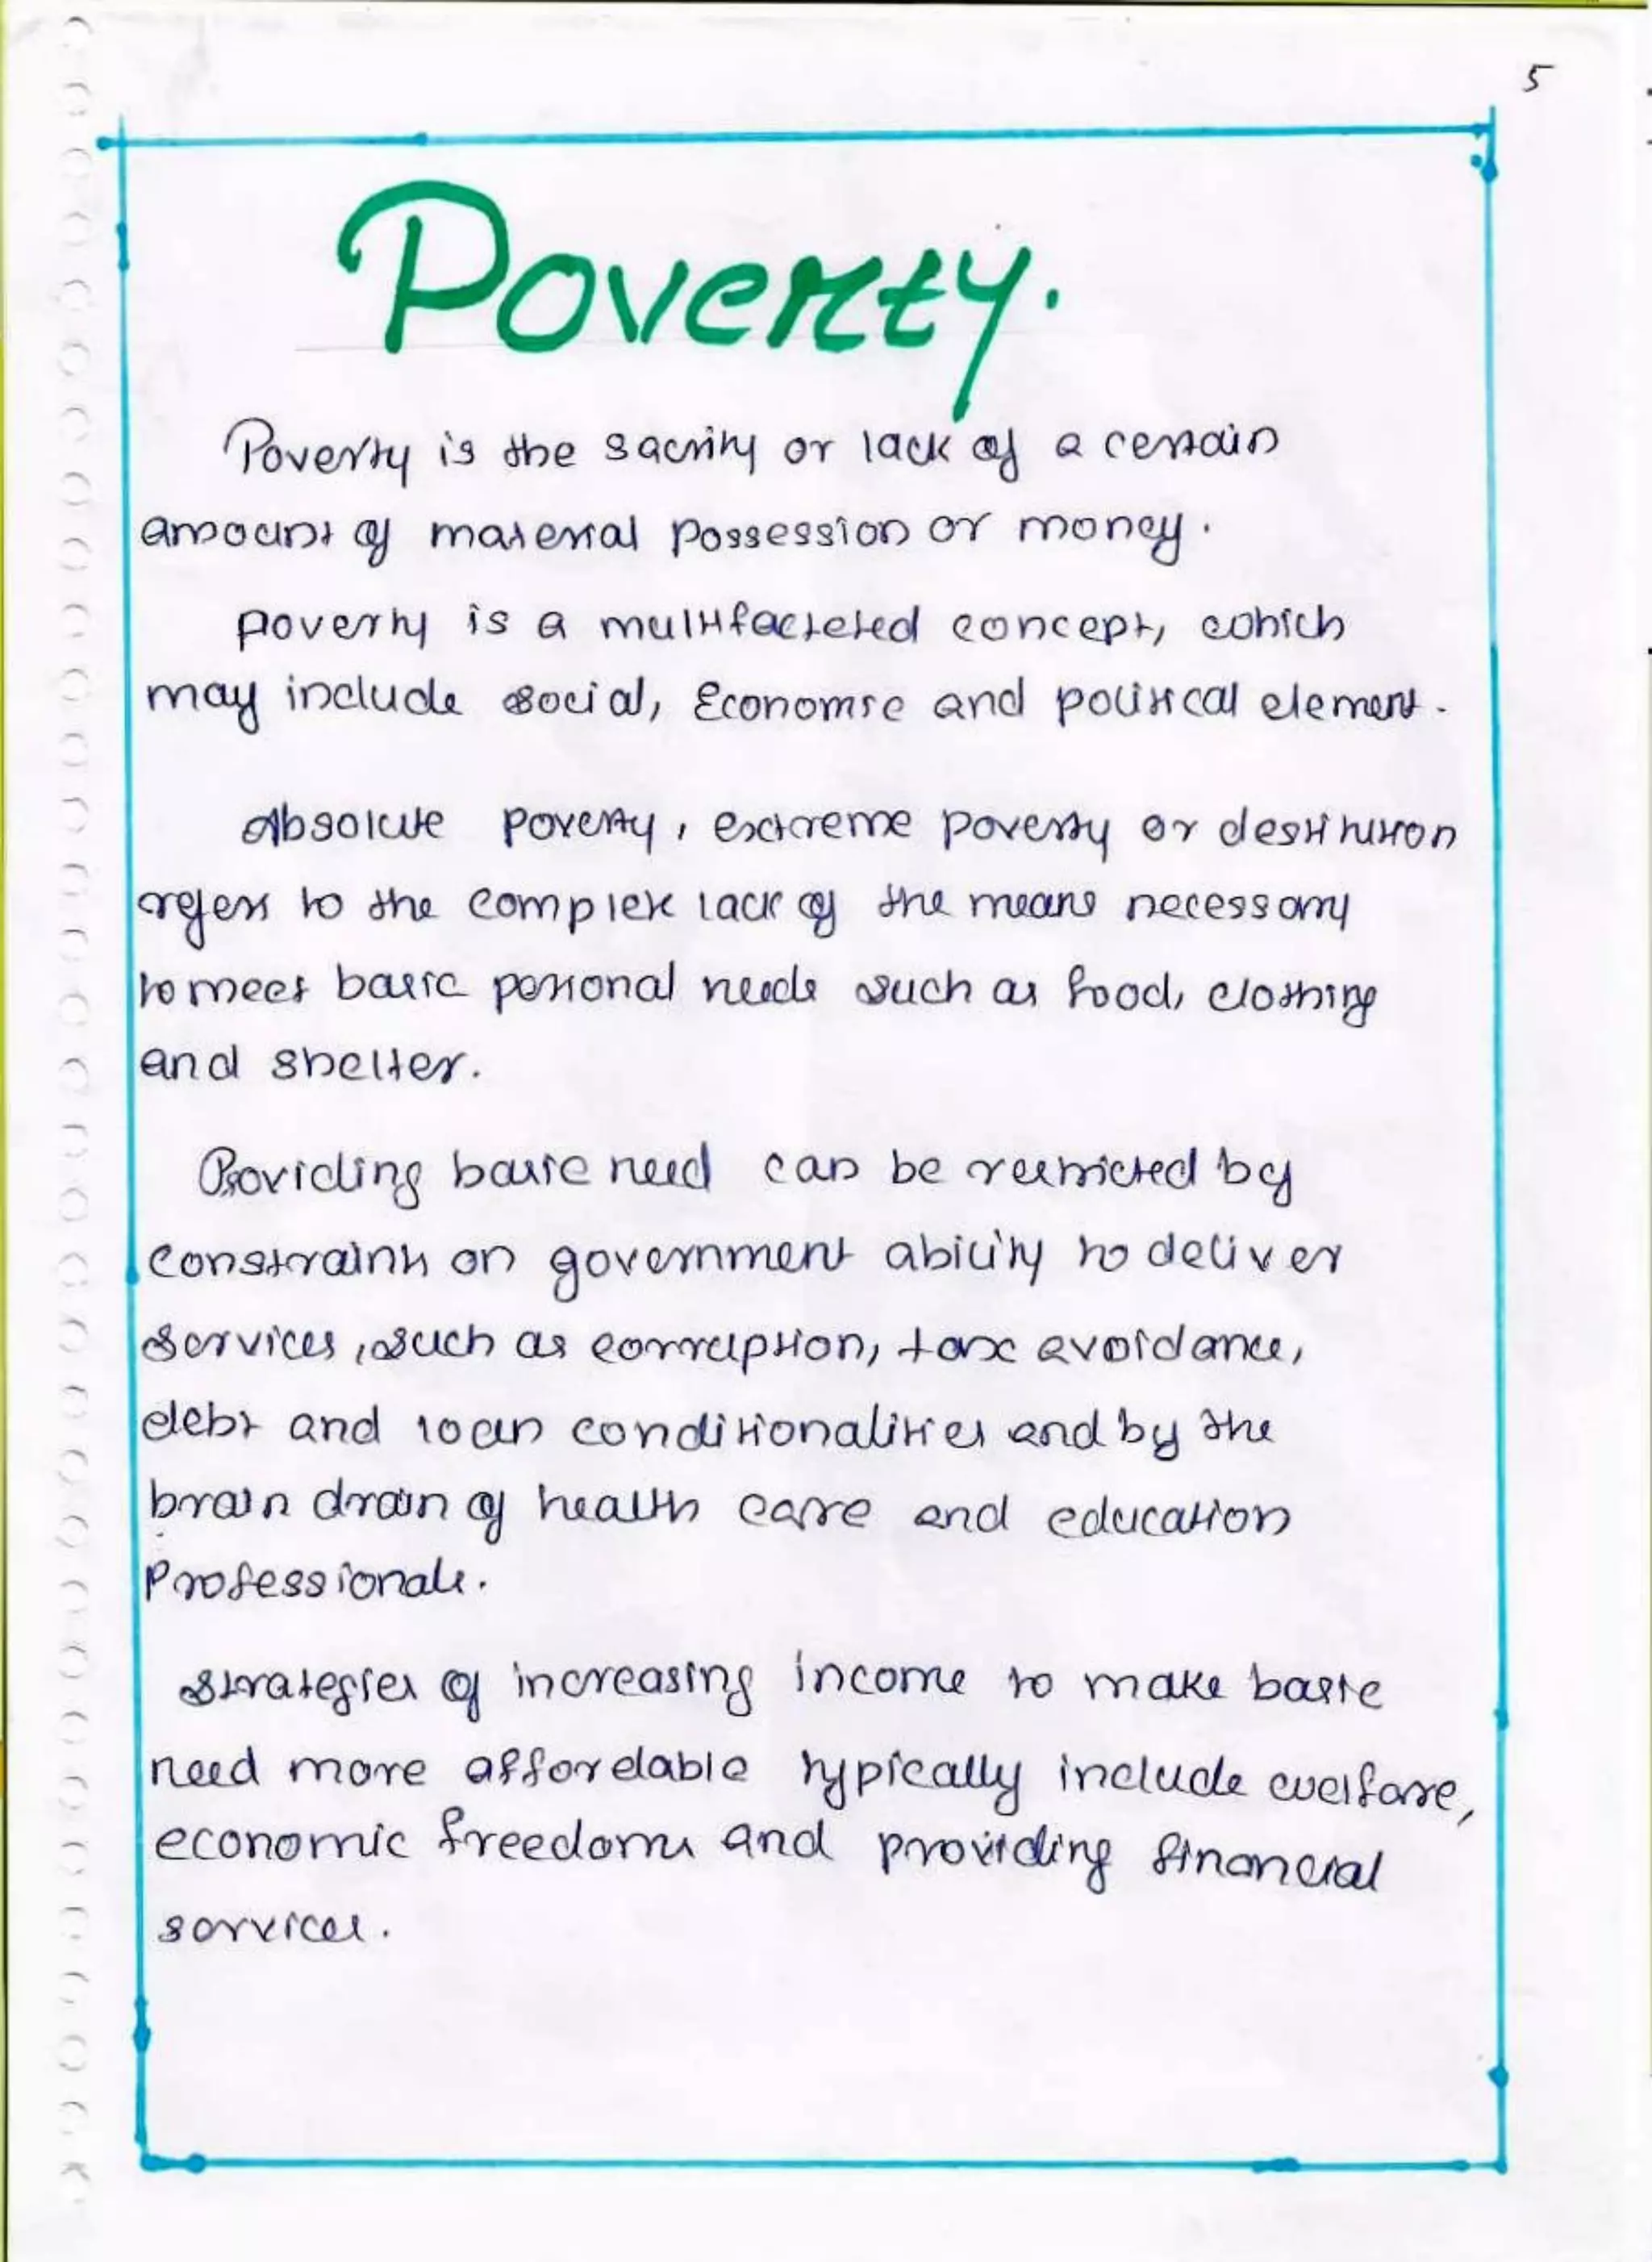 5
Poverty.
Poverty is the sacrity or lack of a certain
amount of material possession or money.
poverty is a multifacteted concept, which
may include social, Economic and political element.
Absolute poverty, extreme poverty or destitution
refers to the complete lack of the means necessary
to meet basic personal needs such as food, clothing
and shelter.
Providing basic need can be restricted by
constraints on government ability to deliver
services, such as corruption, tax avoidance,
debt and loan conditionalities and by the
brain drain of health care and education
Professionals.
Strategies of increasing income to make basic
need more affordable typically include welfare,
economic freedoms and providing financial
services.